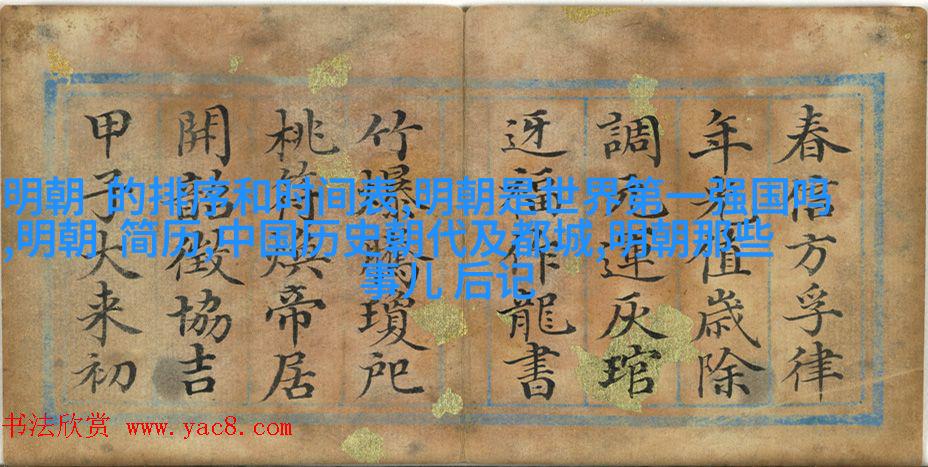 春信方孚律
年光值歲除
調元運灰琯
迓福作龍書
竹爆驚瓊戺
桃符煥帝居
開韶徵協吉
甲子大来初
明朝 的排序和时间表,明朝是世界第一强国吗
,明朝 简历,中国历史朝代及都城,明朝那些
事儿 后记
书法欣赏 www.yac8.com